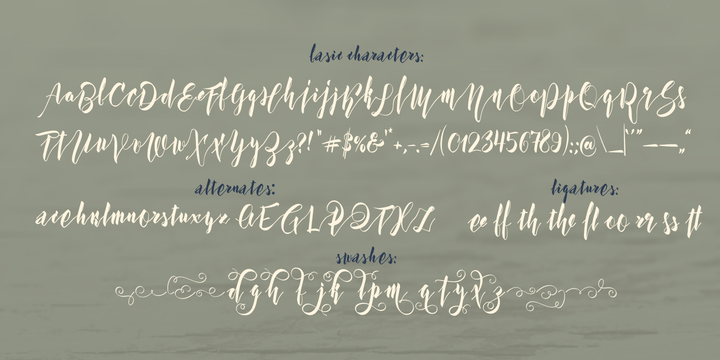 basic characters:
AaBbCcDdEeFfGgHhIiJjKkLlMmNnOoPpQqRrSs
TtUuVvWwXxYyZz?!"#$%&'*+,-.=/(0123456789):;@\_|'""—–„"
alternates: ligatures:
acehklmnorstuxyz AEGLPQTXL ee ff th the fl oo rr ss tt
swashes:
dgh fjk lpm qtyxz